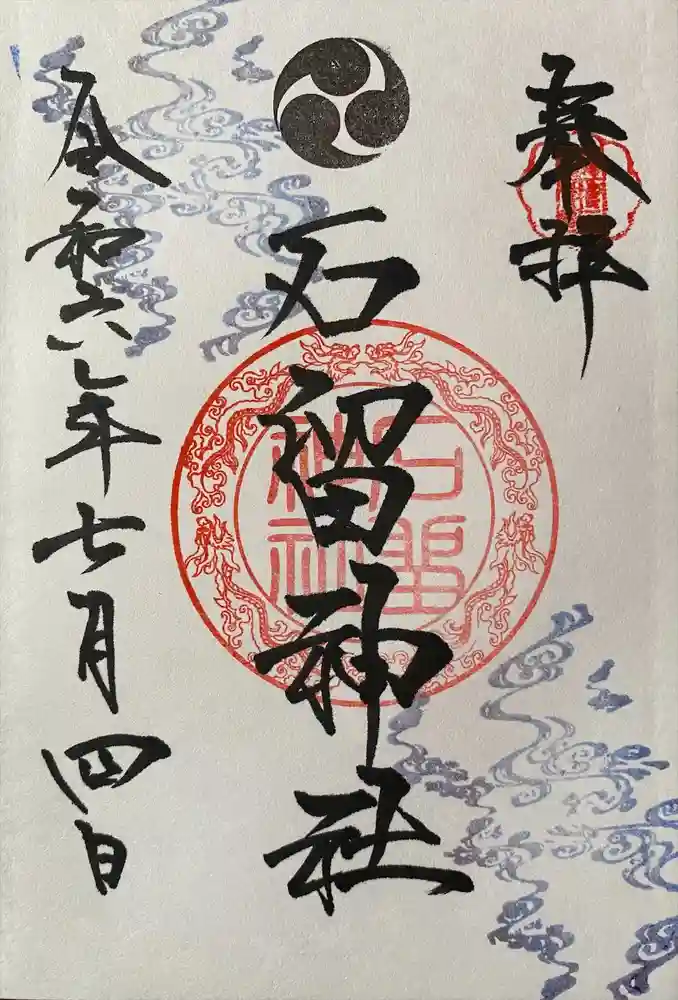 奉拝
石留神社
石留神社
令和六年七月四日